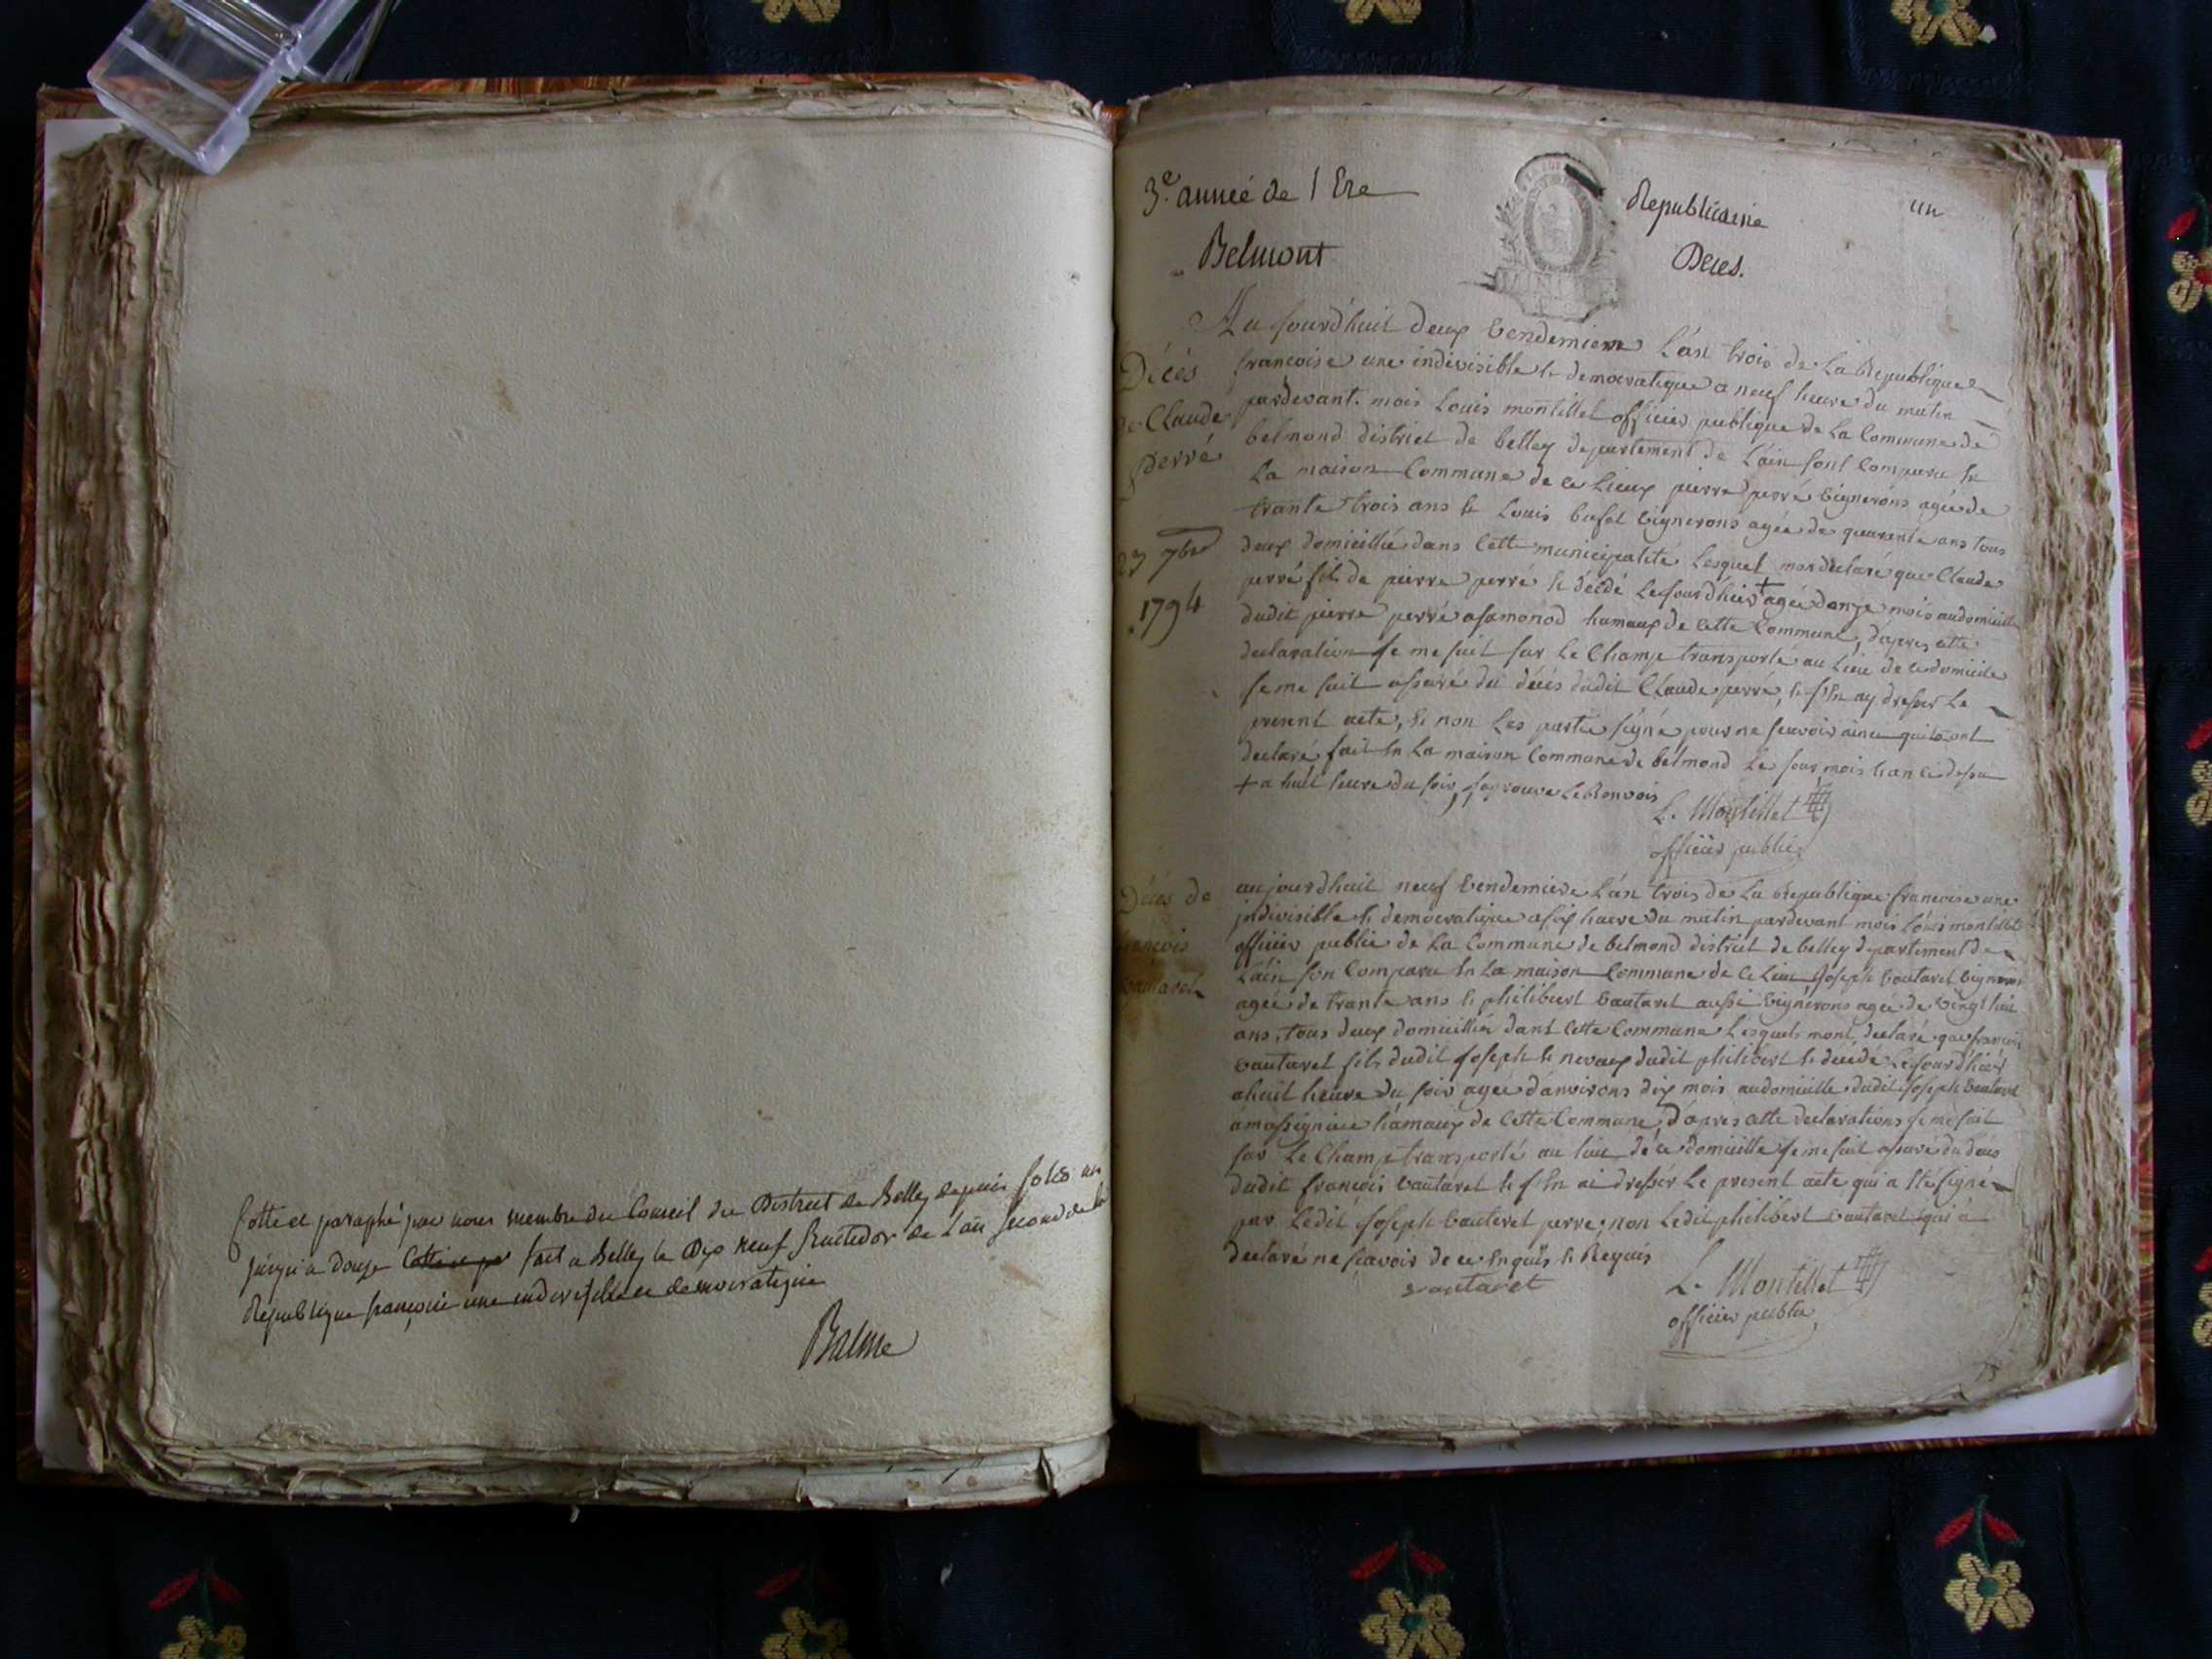 Cotté et paraphé par nous membre du Conseil du District de Belley depuis folio un
jusqu'a douze fait a Belley le Dix neuf fructidor de L'an second de la
Republique françoise une indivisible et democratique
Balme
3.e année de l Ere Republicaine un
Belmont Deces.
Décés
de Claude
perré
23 7bre
1794
Au jourd'huit deux vendemiere L'an trois de La Republique
francoise une indivisible & democratique a neuf heure du matin
pardevant mois Louis montillet officier publique de La Commune de
belmond district de belley departement de L'ain sont Comparu
La maison Commune de ce Lieux pierre perré vignerons agée de
trante trois ans & Louis vignerons agée de quarante ans tous
deux domicillié dans Cette municipalité Lesquel mon déclaré que Claude
perré fils de pierre perré décédé Lejourd'hier + agée d'onze mois audomicille
dudit pierre perré hamaux de Cette Commune, d'apres cette
declaration je me suit sur Le Champ transporté au Lieu de ce domicile
je me suit assuré du décés dudit Claude perré, ay dresser Le
present acte, & non Les partie signé pour ne scavoir ainci quils ont
declaré fait En La maison Commune de belmond Le jour mois & an ci dessu
+ a huit heure du soir, japrouve Le Ronvois
L. Montillet
officier public
Décés de
francois
vautaret
aujourdhuit neuf vendemiere L'an trois de La Republique francoise une
indivisible & democratique a six heure du matin pardevant mois Louis montillet
officier public de La Commune de belmond district de belley departement de
L'ain son Comparu En La maison Commune de ce Lieu Joseph vautaret vignerons
agée de trante ans & philibert vautaret aussi vignerons agée de vingt huit
ans, tous deux domicillié dans Cette Commune Lesquels mont declaré que francois
vautaret fils dudit Joseph & nevaux dudit philibert décédé Lejourd'hiér
a huit heure du soir agée d'anvirons dix mois audomicille dudit Joseph vautaret
a massignieu hamaux de Cette Commune, d'apres cette declarations je me suit
sur Le Champ transporté au lieu de ce domicille je me suit assuré du décés
dudit francois vautaret ai dresser Le present acte qui a Eté signé
par Ledit Joseph vautaret perre, non Ledit philibert vautaret qui a
declaré ne scavoir de ce Enquis & Requis
vautaret
L. Montillet
officier public